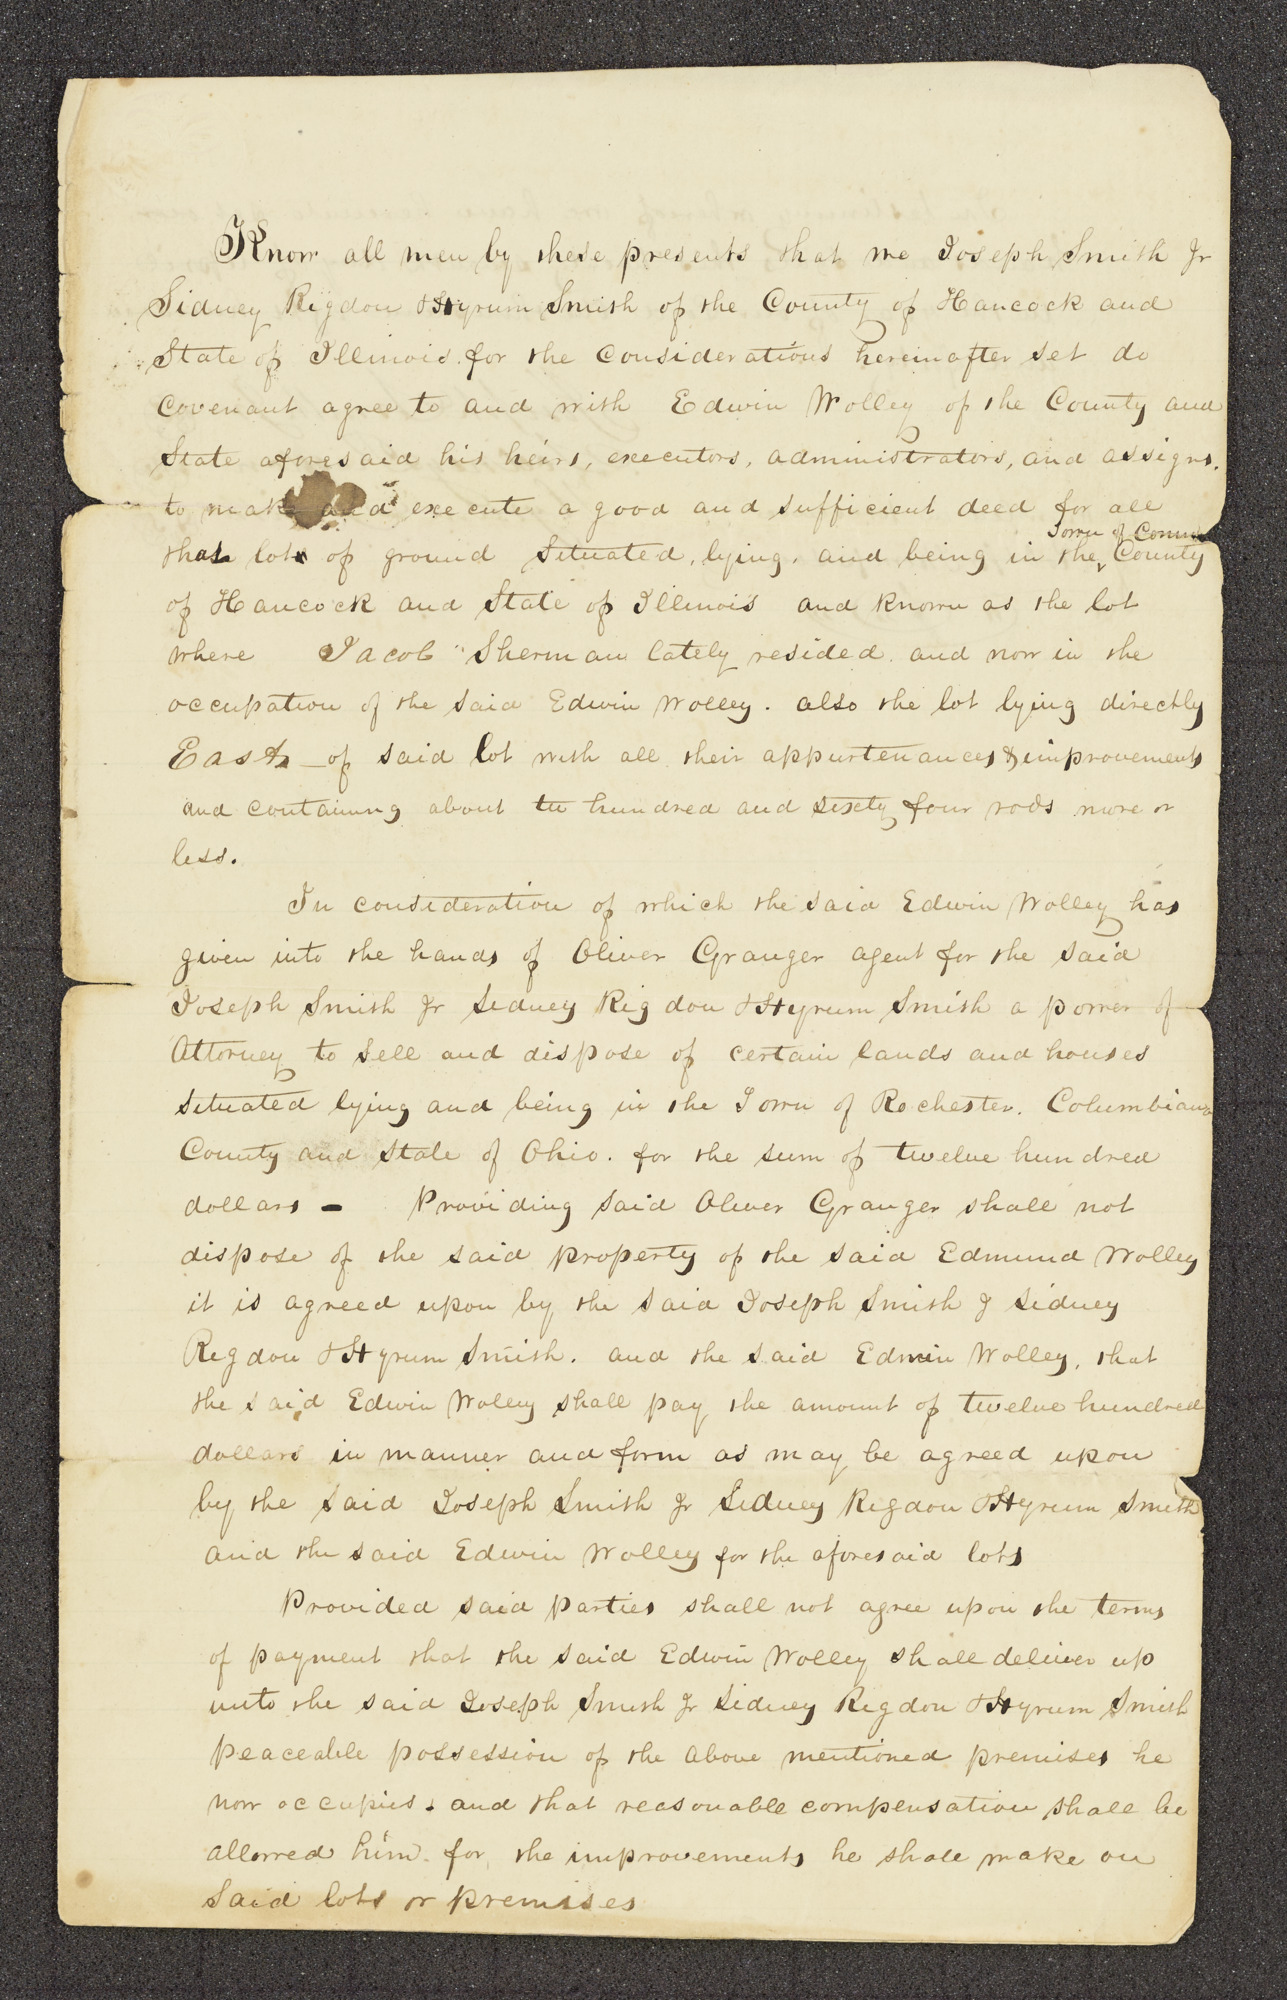 Know all men by these presents that we Joseph Smith Jr
Sidney Rigdon & Hyrum Smith of the County of Hancock and
State of Illinois. for the considerations hereinafter set do
covenant agree to and with Edwin Wolley of the County and
State aforesaid his heirs, executors, administrators, and assigns.
to make and execute a good and sufficient deed for all
that lots of ground situated, lying, and being in the Town of Comm County
of Hancock and State of Illinois and known as the lot
where Jacob Sherman lately resided. and now in the
occupation of the said Edwin Wolley. also the lot lying directly
East of said lot with all their appurtenances & improvements
and containing about hundred and sixty four rods more or
less.
In consideration of which the said Edwin Wolley has
given into the hands of Oliver Granger agent for the said
Joseph Smith Jr Sidney Rigdon & Hyrum Smith a power of
Attorney to sell and dispose of certain lands and houses
situated lying and being in the Town of Rochester. Columbiana
County and State of Ohio. for the sum of twelve hundred
dollars - Providing said Oliver Granger shall not
dispose of the said property of the said Edmund Wolley
it is agreed upon by the said Joseph Smith J Sidney
Rigdon & Hyrum Smith. and the said Edwin Wolley, that
the said Edwin Wolley shall pay the amount of twelve hundred
dollars in manner and form as may be agreed upon
by the said Joseph Smith Jr Sidney Rigdon & Hyrum Smith
and the said Edwin Wolley for the aforesaid lots
Provided said parties shall not agree upon the terms
of payment that the said Edwin Wolley shall deliver up
unto the said Joseph Smith Jr Sidney Rigdon & Hyrum Smith
peaceable possession of the above mentioned premises he
now occupies. and that reasonable compensation shall be
allowed him for the improvements he shall make on
said lots or premises